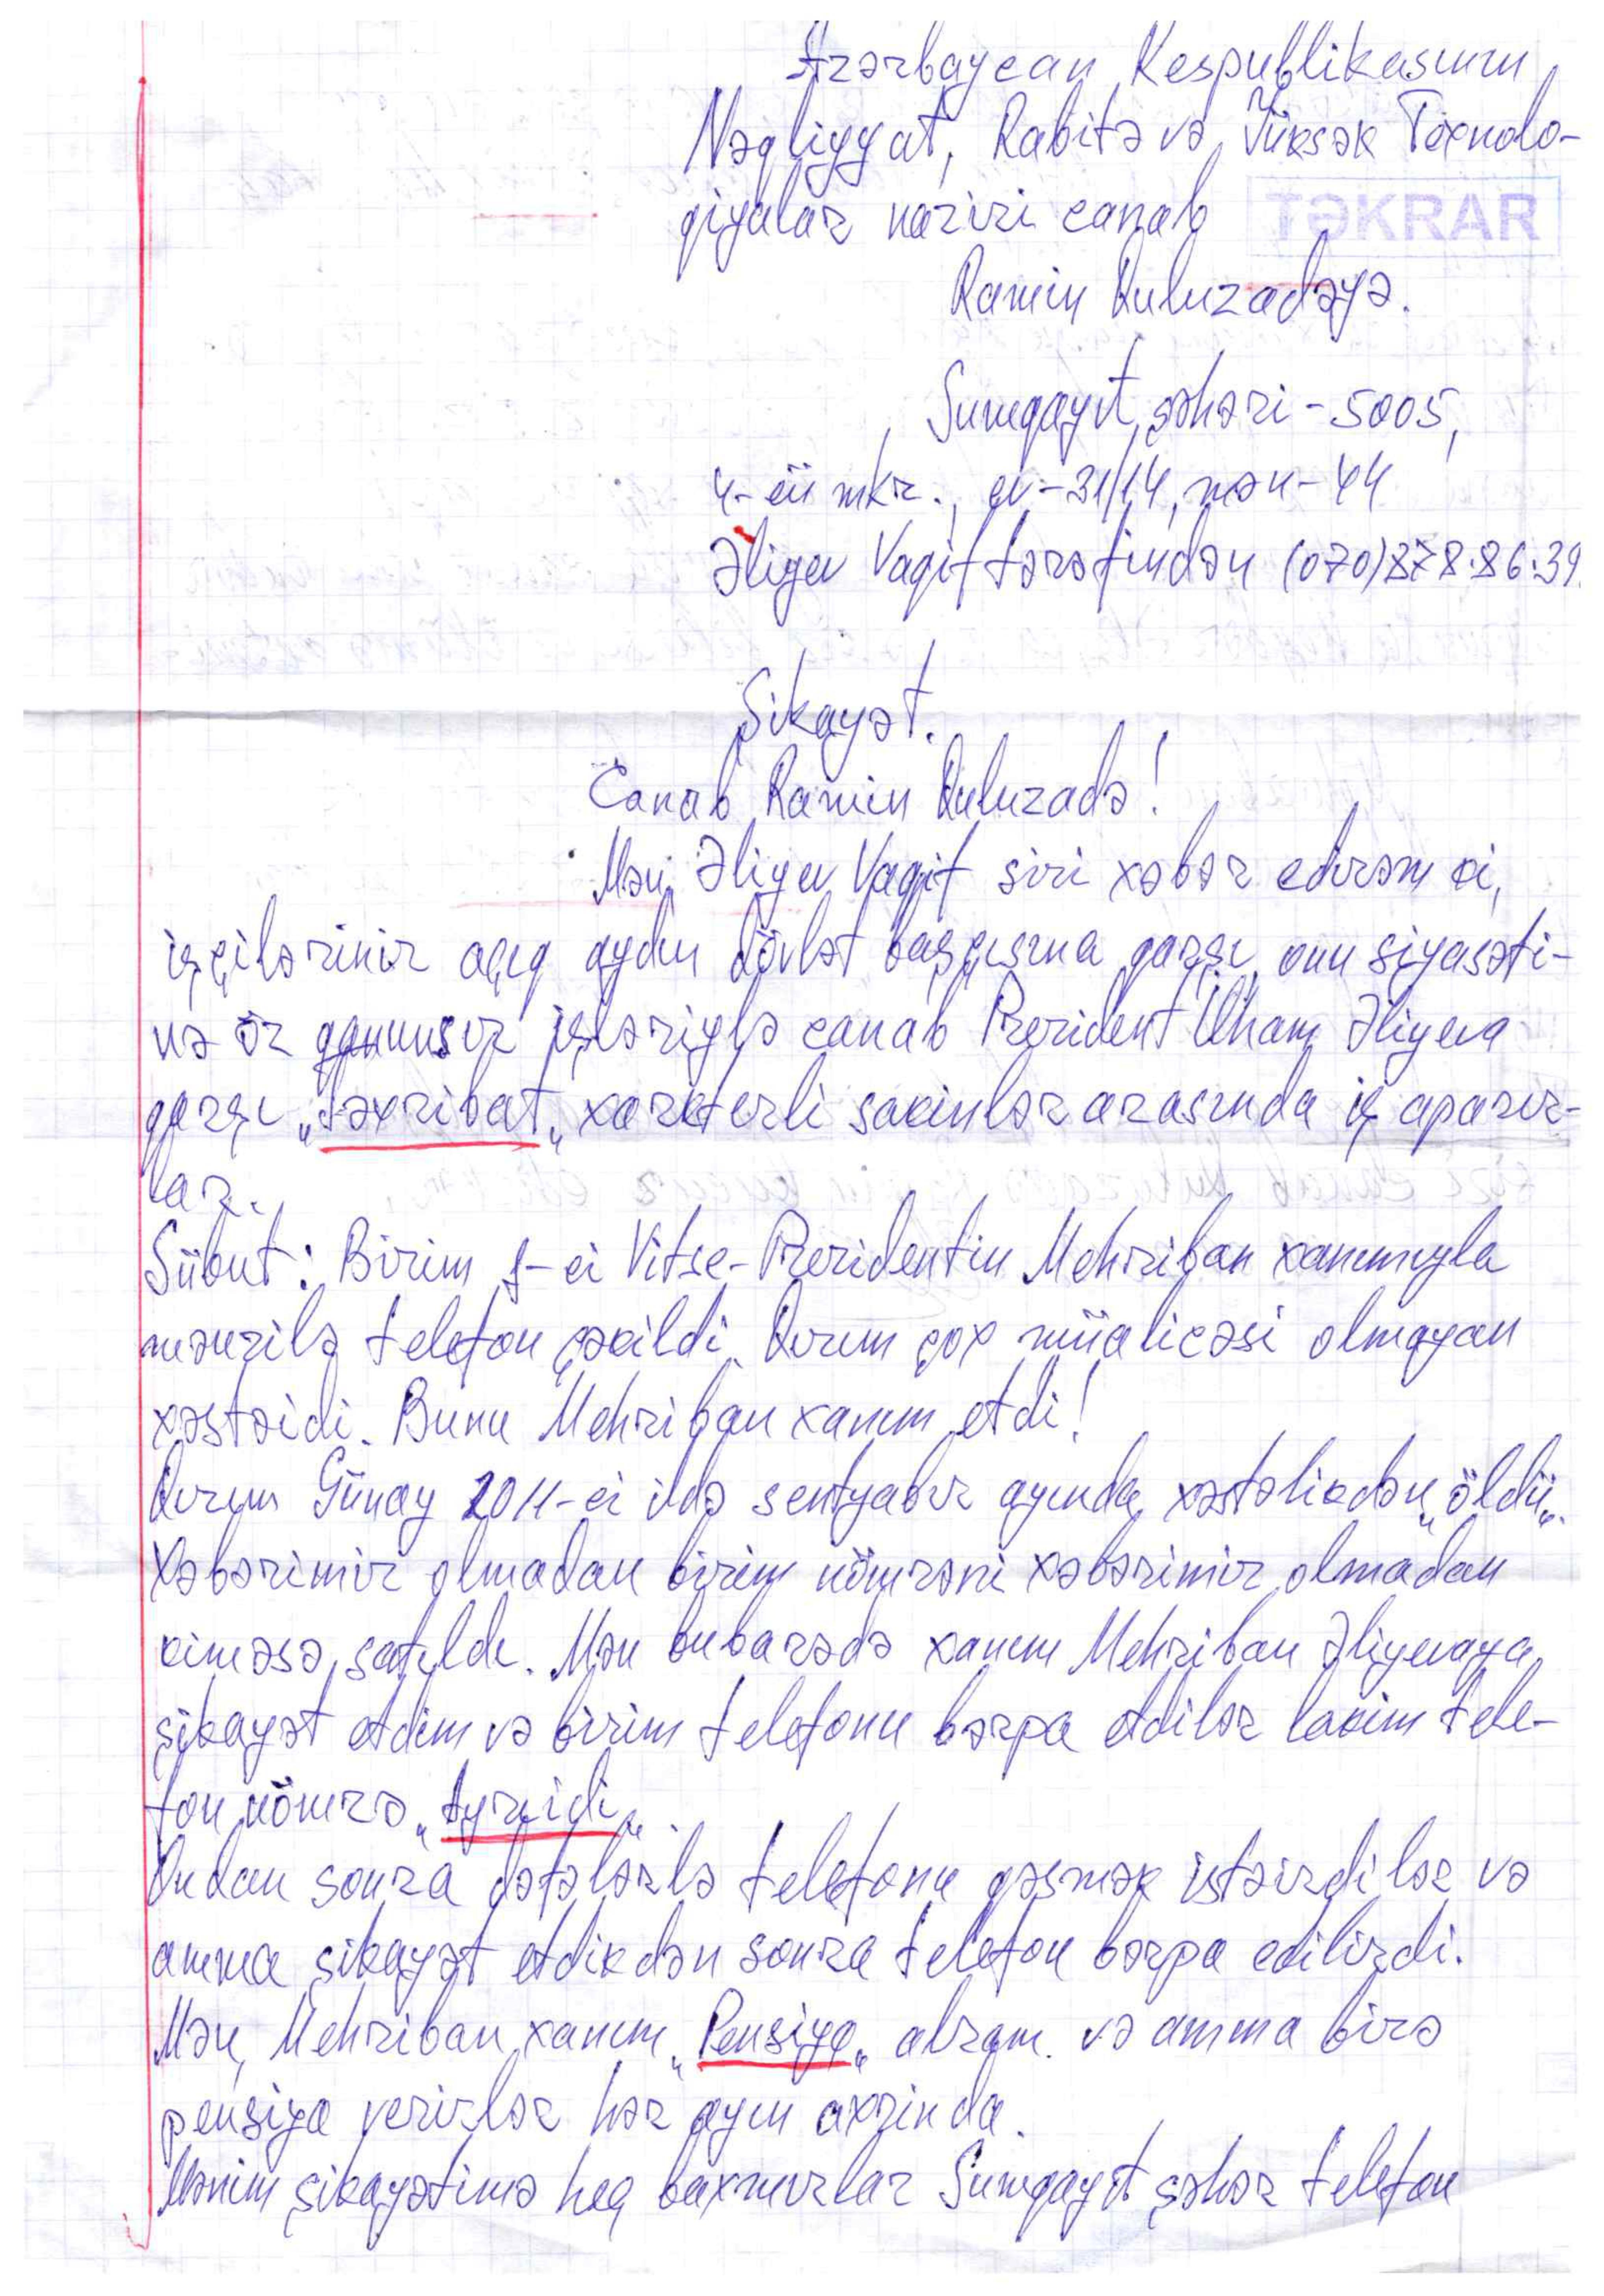 Azərbaycan Respublikasının
Nəqliyyat, Rabitə və Yüksək Texnolo-
giyalar naziri canab
TƏKRAR
Ramin Quluzadəyə.
Sumqayıt şəhəri - 5005,
4-cü mkr., ev-31/14, mən-44
Əliyev Vaqif tərəfindən (070)878.86.39.
Şikayət.
Canab Ramin Quluzadə!
Mən, Əliyev Vaqif sizi xəbər edirəm ki,
işçiləriniz açıq aydın dövlət başçısına qarşı, onu siyasəti-
nə öz qanunsuz işləriylə canab Prezident İlham Əliyevə
qarşı „təxribat„ xarkterli sakinlər arasında iş aparır-
lar.
Sübut: Bizim 1-ci Vitse-Prezidentin Mehriban xanımıyla
mənzilə telefon çəkildi. Qızım çox müalicəsi olmayan
xəstəidi. Bunu Mehriban xanım etdi!
Qızım Günay 2011-ci ildə sentyabır ayında xəstəlikdən „öldü„.
Xəbərimiz olmadan bizim nömrəni xəbərimiz olmadan
kiməsə satıldı. Mən bubarədə xanım Mehriban Əliyevaya
şikayət etdim və bizim telefonu bərpa etdilər lakim tele-
fon nömrə „ayrıidi„.
Ondan sonra dəfələrlə telefonu qəsmək istəirdilər və
amma şikayət etdikdən sonra telefon bərpa edilirdi.
Mən, Mehriban xanım „Pensiya„ alıram. və amma bizə
pensiya verirlər hər ayın axrında.
Mənim şikayətimə heç baxmırlar Sumqayıt şəhər telefon